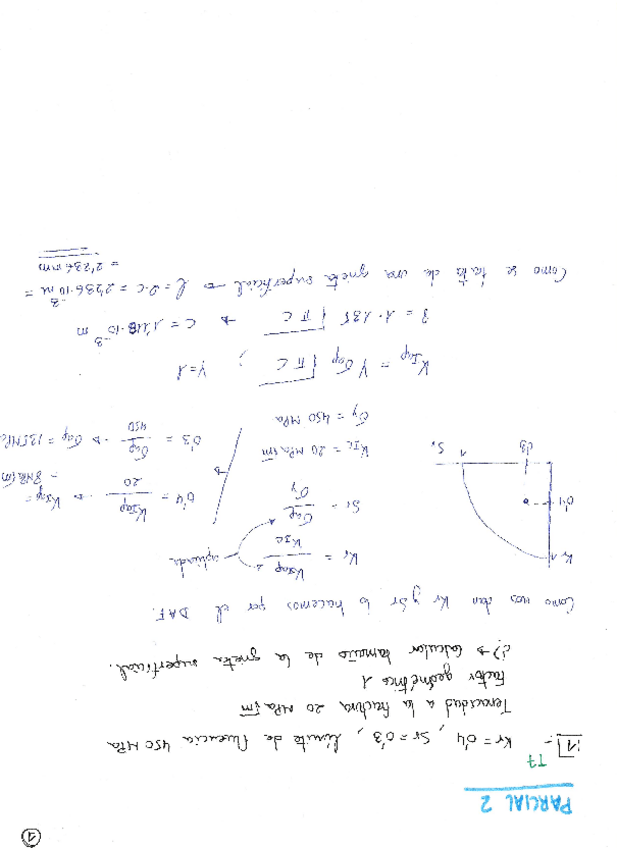 1
PARCIAL 2
T7
1.- Kr = 0'4, Sr = 0'3, límite de fluencia 450 MPa
Tenacidad a la fractura 20 MPa√m
Factor geométrico 1
¿? → Calcular tamaño de la grieta superficial.
Como nos dan Kr y Sr lo hacemos por el DAF.
Kr
0'4
0'3
1
Sr
Kr = KIap / KIC
aplicada
Sr = σap / σy
KIC = 20 MPa√m
σy = 450 MPa
0'4 = KIap / 20 → KIap =
= 8 MPa√m
0'3 = σap / 450 → σap = 135 MPa
KIap = Y σap √πC ; Y=1
8 = 1·135 √πC → C = 1'118·10⁻³ m
Como se trata de una grieta superficial → l = 2·C = 2'236·10⁻³ m =
= 2'236 mm